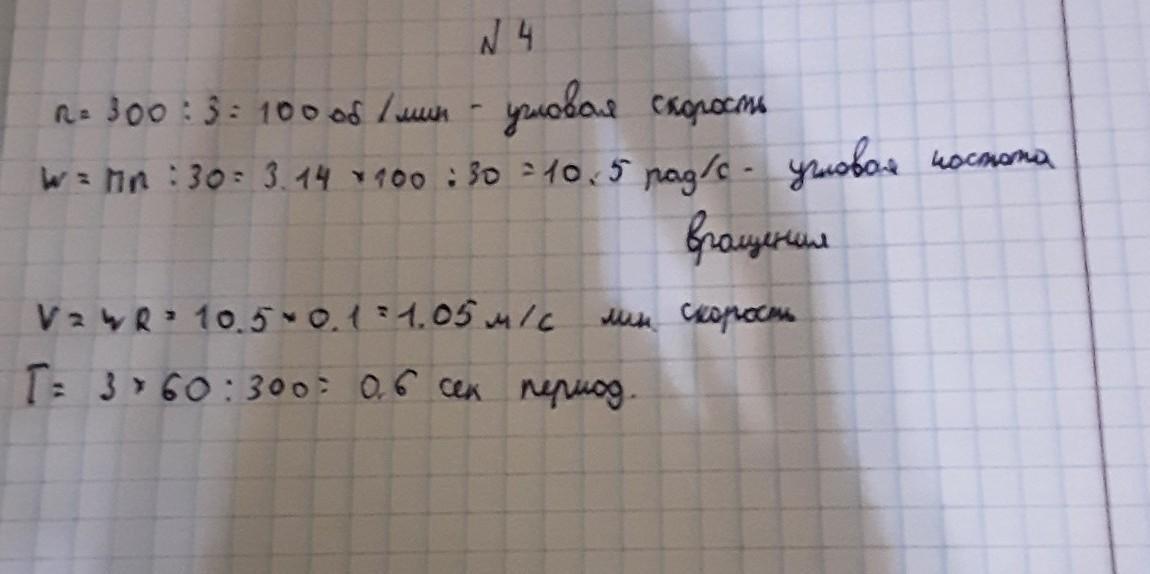 N 4
n = 300 : 3 = 100 об /мин - угловая скорость
w = πn : 30 = 3.14 * 100 : 30 = 10.5 рад/с - угловая частота
вращения
V = wR = 10.5 * 0.1 = 1.05 м/с лин скорость
T = 3 * 60 : 300 = 0.6 сек период.